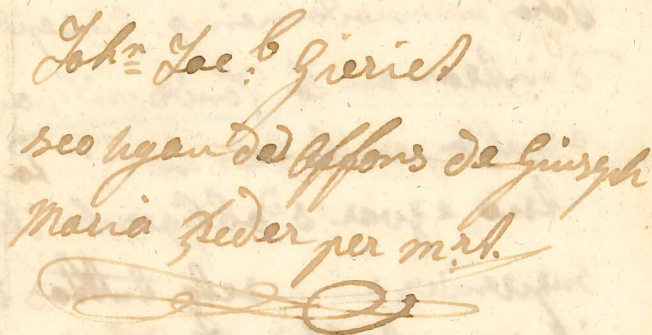 Johñ Jac:b Gieriet
seo ugau de affons de Giuseph
Maria Peder per m:rt.